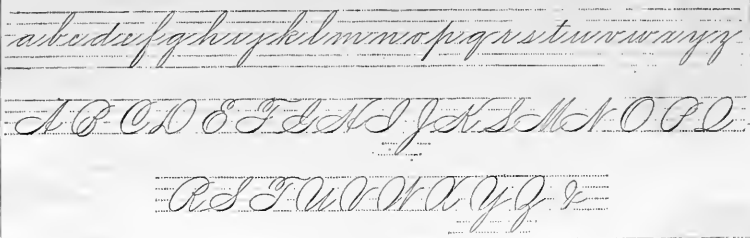 a b c d e f g h i j k l m n o p q r s t u v w x y z
A B C D E F G H I J K L M N O P Q
R S T U V W X Y Z &